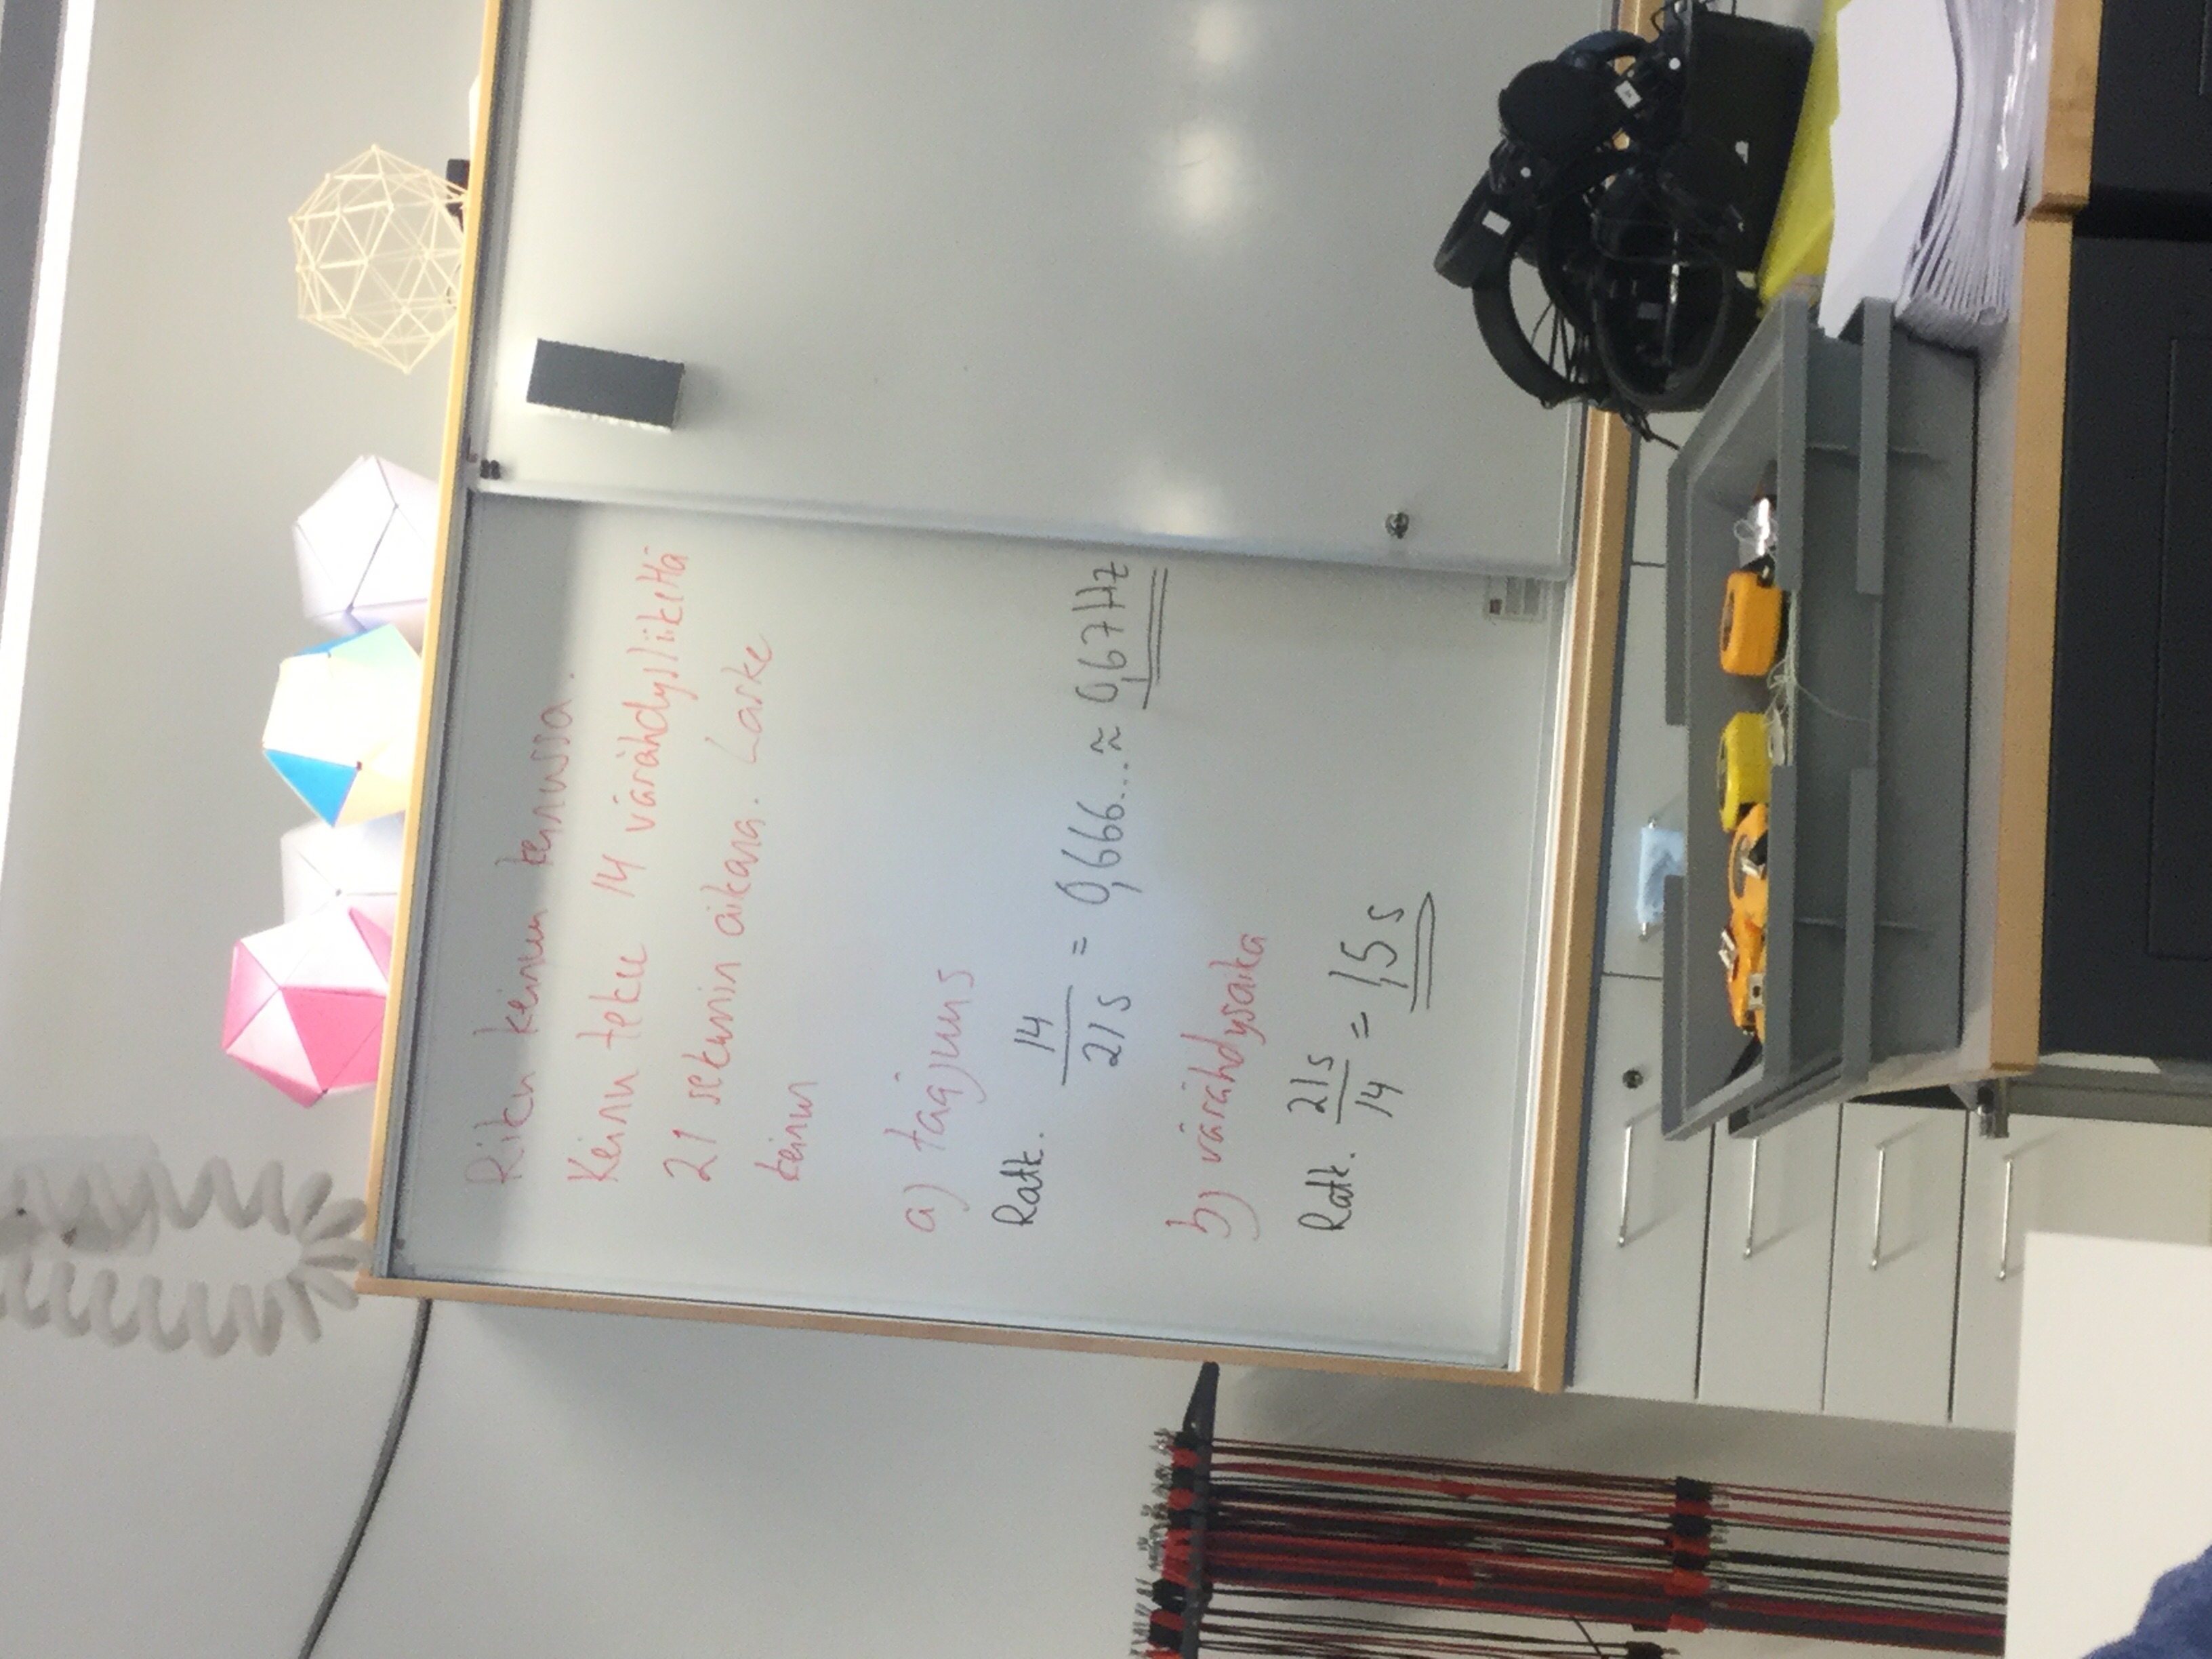 Riku keinuu keinussa.
Keinu tekee 14 värähdysliikettä
21 sekunnin aikana. Laske
keinun
a) taajuus
Ratk. 14/21 s = 0,666... ≈ 0,67 Hz
b) värähdysaika
Ratk. 21 s/14 = 1,5 s